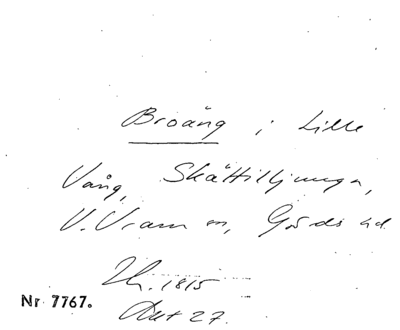 Broäng i Lille
Vång, Skättilljunga,
V. Vram sn, Gärds hd.
Lh. 1815
Akt 27.
Nr 7767.